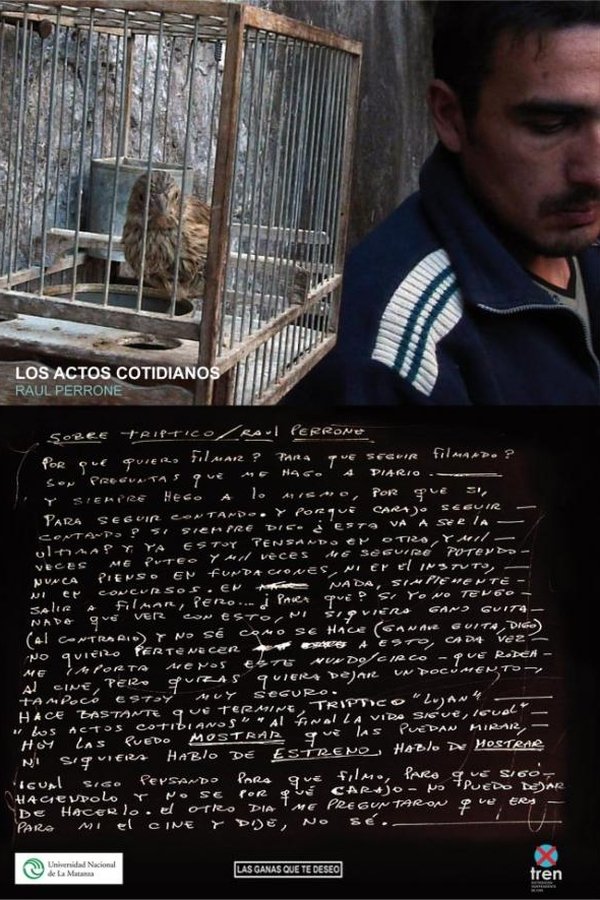 LOS ACTOS COTIDIANOS
RAUL PERRONE
SOBRE TRIPTICO/RAUL PERRONE
POR QUÉ QUIERO FILMAR? PARA QUE SEGUIR FILMANDO?
SON PREGUNTAS QUE ME HAGO A DIARIO.
Y SIEMPRE HEGO A LO MISMO, POR QUE SI,
PARA SEGUIR CONTANDO. Y PORQUÉ CARAJO SEGUIR
CONTANDO? SI SIEMPRE DIGO ¿ESTA VA A SER LA
ULTIMA? Y YA ESTOY PENSANDO EN OTRA, Y MIL
VECES ME PUTEO Y MIL VECES ME SEGUIRÉ PUTENDO
NUNCA PIENSO EN FUNDACIONES, NI EN EL INSTUTO,
NI EN CONCURSOS. EN NADA, SIMPLEMENTE
SALIR A FILMAR, PERO... ¿PARA QUÉ? SI YO NO TENGO
NADA QUE VER CON ESTO, NI SIQUIERA GANO GUITA
(AL CONTRARIO) Y NO SÉ COMO SE HACE (GANAR GUITA, DIGO)
NO QUIERO PERTENECER A ESTO, CADA VEZ
ME IMPORTA MENOS ESTE MUNDO/CIRCO - QUE RODEA
AL CINE, PERO QUIZAS QUIERA DEJAR UN DOCUMENTO,
TAMPOCO ESTOY MUY SEGURO.
HACE BASTANTE QUE TERMINE, TRIPTICO "LUJAN",
"LOS ACTOS COTIDIANOS" "AL FINAL LA VIDA SIGUE, IGUAL"
HOY LAS PUEDO MOSTRAR QUE LAS PUEDAN MIRAR,
NI SIQUIERA HABLO DE ESTRENO, HABLO DE MOSTRAR
IGUAL SIGO PENSANDO PARA QUE FILMO, PARA QUE SIGO
HACIENDOLO Y NO SE POR QUÉ CARAJO - NO PUEDO DEJAR
DE HACERLO. EL OTRO DIA ME PREGUNTARON QUE ERA
PARA MI EL CINE Y DIJE, NO SÉ.
Universidad Nacional
de La Matanza
LAS GANAS QUE TE DESEO
tren